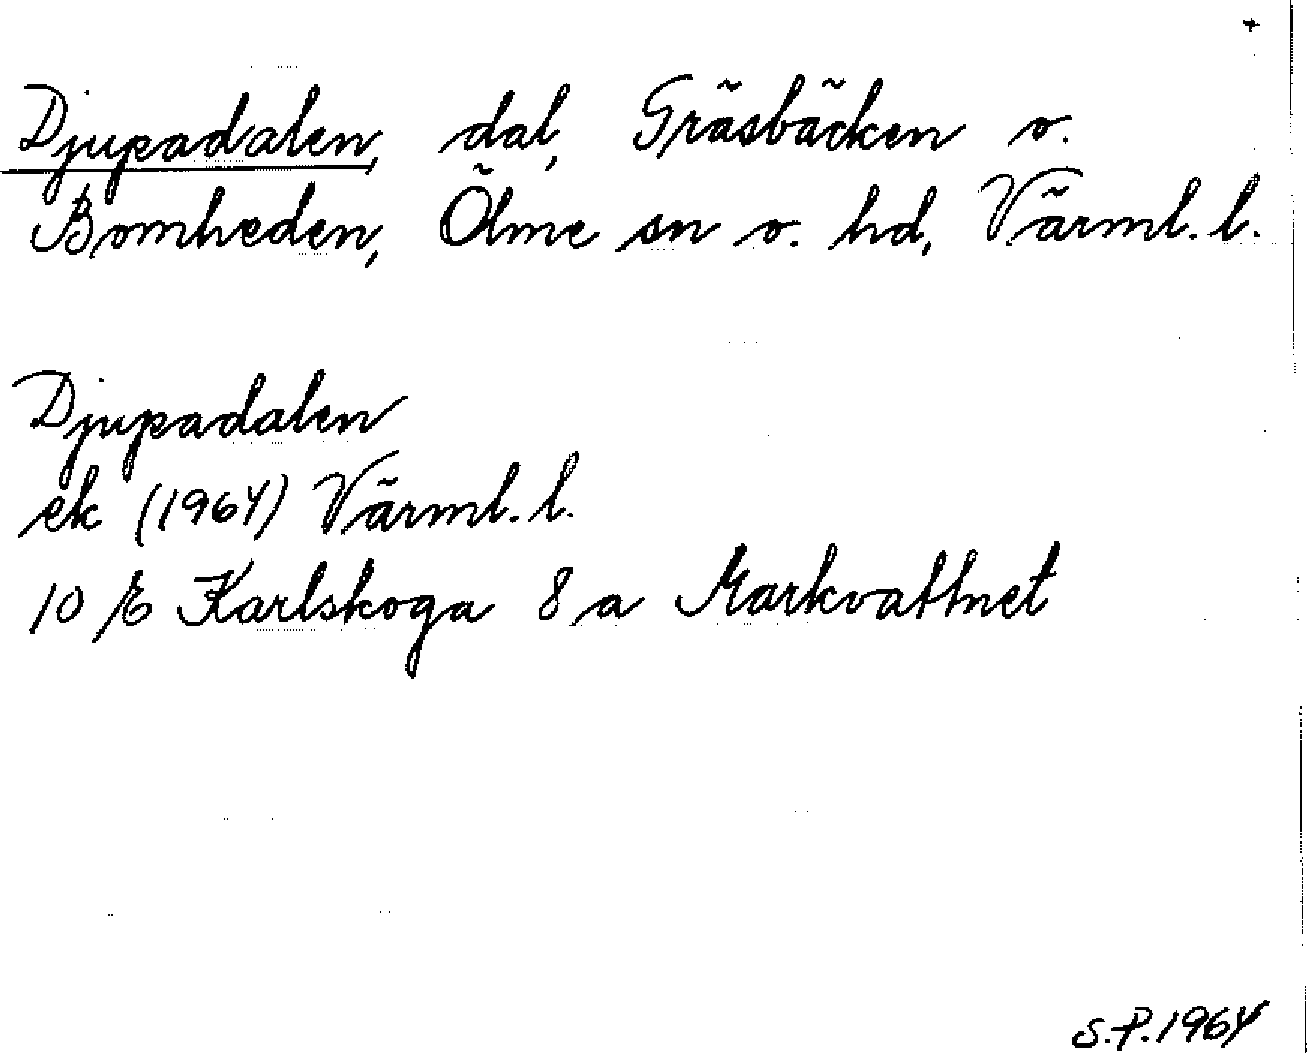 +
Djupadalen, dal, Gräsbäcken o.
Bomheden, Ölme sn o. hd, Värml. l.
Djupadalen
ek (1964) Värml. l.
10 E Karlskoga 8 a Markvattnet
S.P. 1964